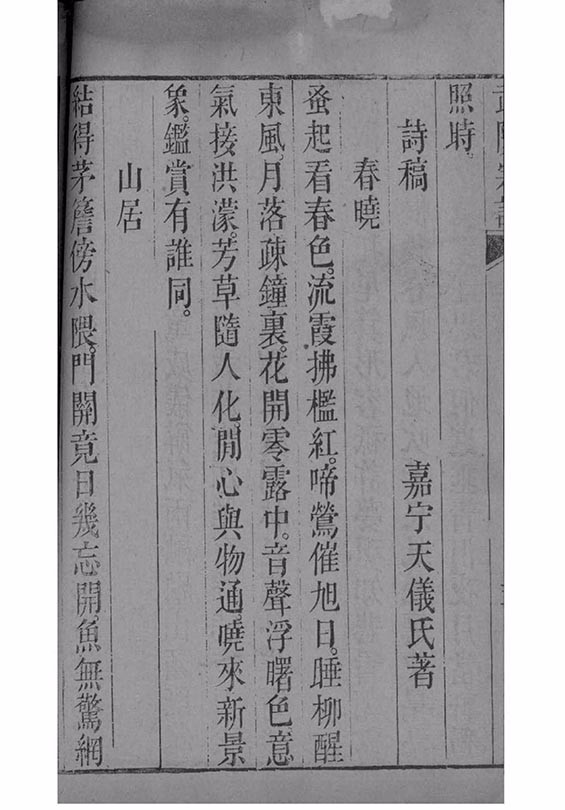 照時
詩稿 嘉宁天儀氏著
春曉
蚤起看春色。流霞拂檻紅。啼鶯催旭日。睡柳醒
東風。月落疎鐘裏。花開零露中。音聲浮曙色。意
氣接洪濛。芳草隨人化。閒心與物通。曉來新景
象。鑑賞有誰同。
山居
結得茅簷傍水隈。門關竟日幾忘開。魚無驚網